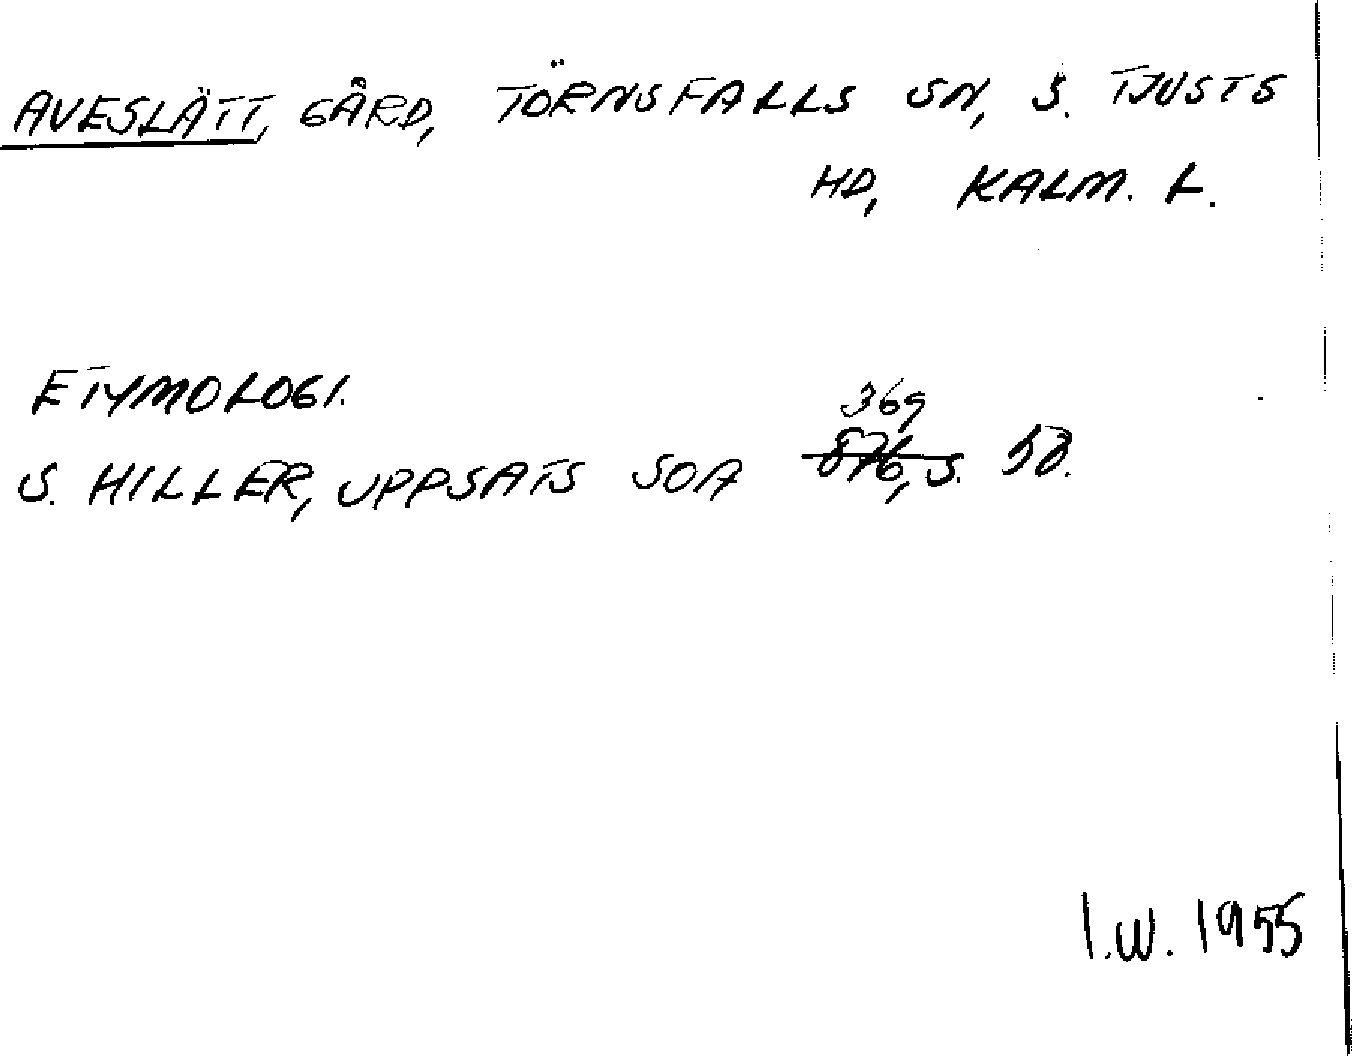 AVESLÄTT, GÅRD, TÖRNSFALLS SN, S. TJUSTS
HD, KALM. L.
ETYMOLOGI.
369
S. HILLER, UPPSATS SOA 876, S. 58.
I.W. 1955